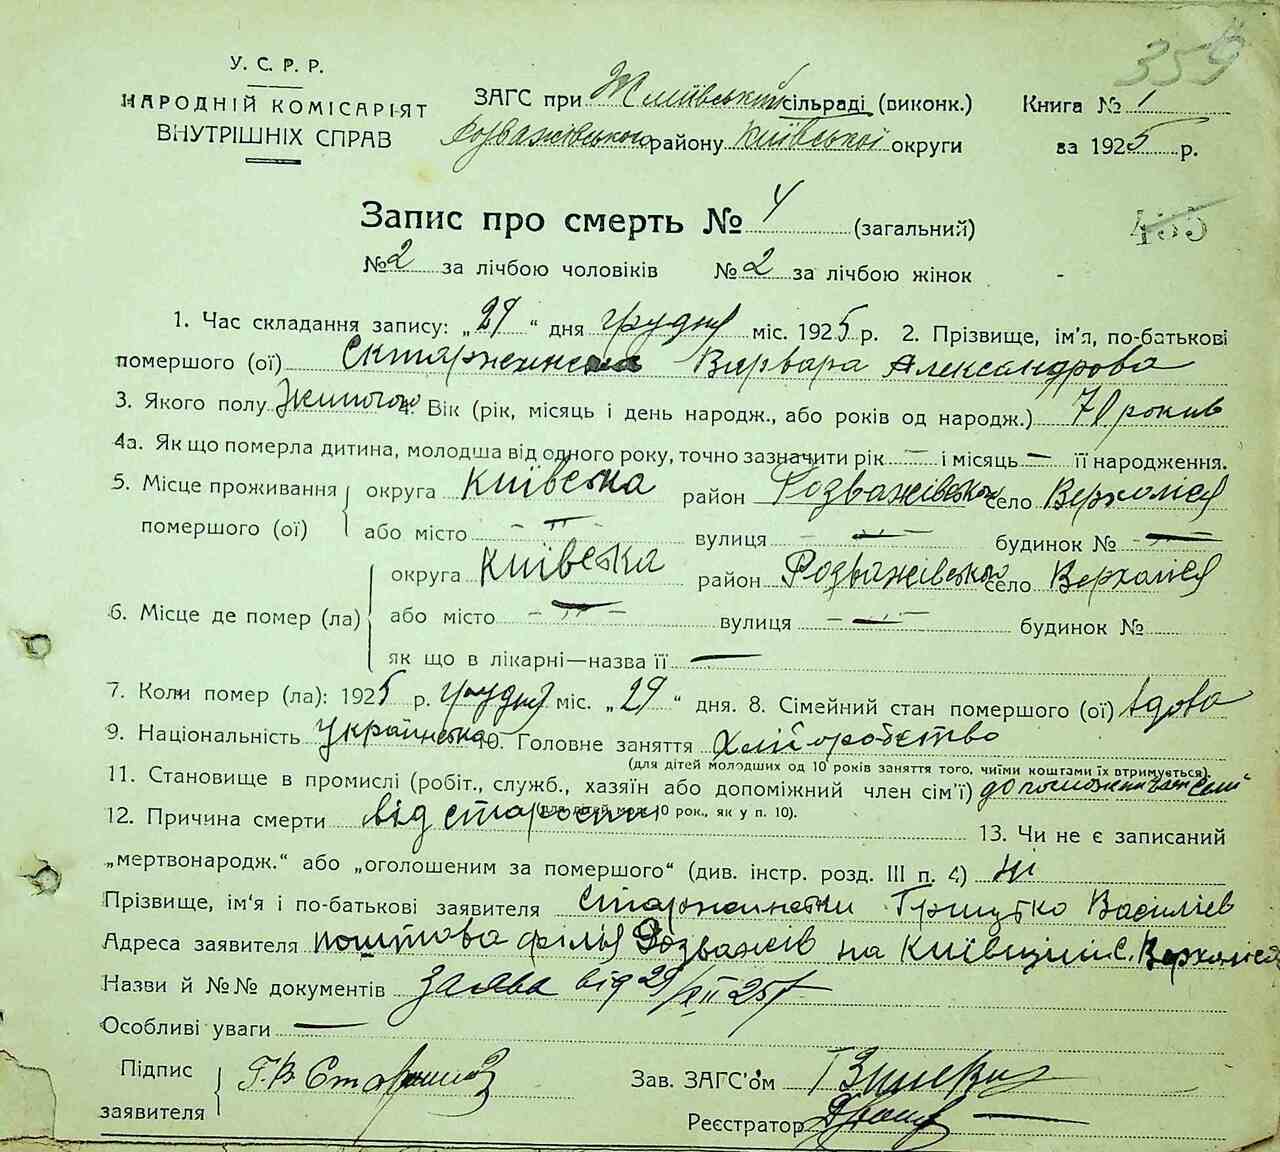 359
У. С. Р. Р.
НАРОДНІЙ КОМІСАРІЯТ
ВНУТРІШНІХ СПРАВ
ЗАГС при Жміївській сільраді (виконк.)
Розважівського району Київської округи
Книга № 1
за 1925 р.
Запис про смерть № 4 (загальний)
455
№ 2 за лічбою чоловіків № 2 за лічбою жінок
1. Час складання запису: „29“ дня грудня міс. 1925 р. 2. Прізвище, ім'я, по-батькові
помершого (ої) Вярвара Александрова
3. Якого полу Жиночого 4. Вік (рік, місяць і день народж., або років од народж.) 70 рокив
4а. Як що померла дитина, молодша від одного року, точно зазначити рік — і місяць — її народження.
5. Місце проживання помершого (ої) округа Київська район Розважівський село Верхолісся
або місто — " — вулиця — " — будинок № — " —
6. Місце де помер (ла) округа Київська район Розважівський село Верхолісся
або місто — " — вулиця — " — будинок №
як що в лікарні—назва її —
7. Коли помер (ла): 1925 р. грудня міс. „29“ дня. 8. Сімейний стан помершого (ої) вдова
9. Національність Українська 10. Головне заняття хліборобство
(для дітей молодших од 10 років заняття того, чиїми коштами їх втримується).
11. Становище в промислі (робіт., служб., хазяїн або допоміжний член сім'ї)
(для дітей мол. 10 рок., як у п. 10).
12. Причина смерти від старости 13. Чи не є записаний
„мертвонародж.“ або „оголошеним за помершого“ (див. інстр. розд. III п. 4) ні
Прізвище, ім'я і по-батькові заявителя Грицько Василіев
Адреса заявителя поштова філія Розважів на Київщині с. Верхолісся
Назви й №№ документів заява від 29/XII 25 р
Особливі уваги —
Підпис заявителя Г. В.
Зав. ЗАГС'ом
Реєстратор